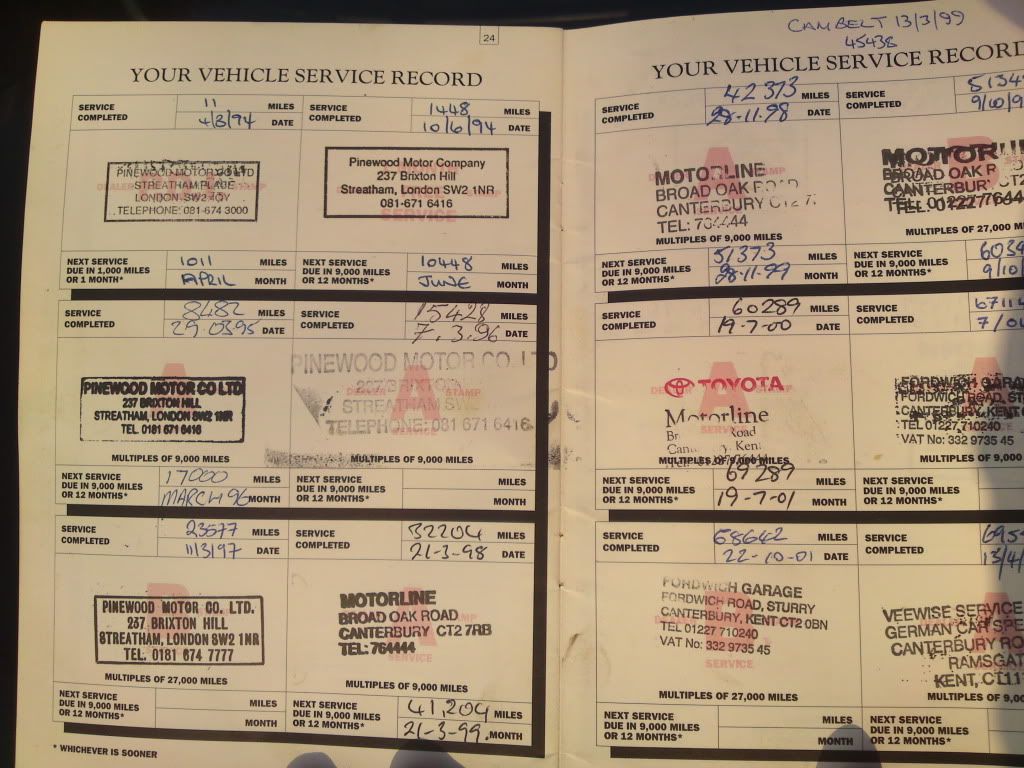 24
YOUR VEHICLE SERVICE RECORD
SERVICE COMPLETED 11 MILES
4/3/94 DATE
PINEWOOD MOTOR
STREATHAM PLACE
LONDON SW2
TELEPHONE: 081 674 3000
NEXT SERVICE DUE IN 1,000 MILES OR 1 MONTH* 1011 MILES
APRIL MONTH
SERVICE COMPLETED 1448 MILES
10/6/94 DATE
Pinewood Motor Company
237 Brixton Hill
Streatham, London SW2 1NR
081-671 6416
SERVICE
NEXT SERVICE DUE IN 9,000 MILES OR 12 MONTHS* 10448 MILES
JUNE MONTH
SERVICE COMPLETED 8482 MILES
29.0395 DATE
PINEWOOD MOTOR CO LTD
237 BRIXTON HILL
STREATHAM, LONDON SW2 1NR
TEL. 0181 671 6416
MULTIPLES OF 9,000 MILES
NEXT SERVICE DUE IN 9,000 MILES OR 12 MONTHS* 17000 MILES
MARCH 96 MONTH
SERVICE COMPLETED 15428 MILES
7.3.96 DATE
PINEWOOD MOTOR CO. LTD
237 BRIXTON
STREATHAM SW2
TELEPHONE: 081 671 6416
DEALER STAMP
SERVICE
MULTIPLES OF 9,000 MILES
NEXT SERVICE DUE IN 9,000 MILES OR 12 MONTHS* MILES
MONTH
SERVICE COMPLETED 23577 MILES
11/3/97 DATE
PINEWOOD MOTOR CO. LTD.
237 BRIXTON HILL
STREATHAM, LONDON SW2 1NR
TEL. 0181 674 7777
MULTIPLES OF 27,000 MILES
NEXT SERVICE DUE IN 9,000 MILES OR 12 MONTHS* MILES
MONTH
SERVICE COMPLETED 32204 MILES
21-3-98 DATE
MOTORLINE
BROAD OAK ROAD
CANTERBURY CT2 7RB
TEL: 764444
A
SERVICE
MULTIPLES OF 9,000 MILES
NEXT SERVICE DUE IN 9,000 MILES OR 12 MONTHS* 41,204 MILES
21-3-99. MONTH
* WHICHEVER IS SOONER
CAMBELT 13/3/99
45438
YOUR VEHICLE SERVICE RECORD
SERVICE COMPLETED 42373 MILES
28-11-98 DATE
MOTORLINE
BROAD OAK ROAD
CANTERBURY CT2 7
TEL: 764444
A
SERVICE
MULTIPLES OF 9,000 MILES
NEXT SERVICE DUE IN 9,000 MILES OR 12 MONTHS* 51373 MILES
28-11-99 MONTH
SERVICE COMPLETED
9/10/9
MOTORLINE
BROAD OAK ROAD
CANTERBURY CT2
TEL: 01227 764
MULTIPLES OF 27,000 M
NEXT SERVICE DUE IN 9,000 MILES OR 12 MONTHS*
9/10/
SERVICE COMPLETED 60289 MILES
19-7-00 DATE
TOYOTA
Motorline
DEALER STAMP
SERVICE
MULTIPLES OF 9,000 MILES
NEXT SERVICE DUE IN 9,000 MILES OR 12 MONTHS* 69289 MILES
19-7-01 MONTH
SERVICE COMPLETED
FORDWICH GARA
FORDWICH ROAD, ST
CANTERBURY, KENT
TEL 01227 710240
VAT No: 332 9735 45
MULTIPLES OF 9,000 MIL
NEXT SERVICE DUE IN 9,000 MILES OR 12 MONTHS*
SERVICE COMPLETED 68642 MILES
22-10-01 DATE
FORDWICH GARAGE
FORDWICH ROAD, STURRY
CANTERBURY, KENT CT2 0BN
TEL 01227 710240
VAT No: 332 9735 45
SERVICE
MULTIPLES OF 27,000 MILES
NEXT SERVICE DUE IN 9,000 MILES OR 12 MONTHS* MILES
MONTH
SERVICE COMPLETED
13/4/
VEEWISE SERVICE
GERMAN CAR SPE
CANTERBURY RO
RAMSGAT
KENT, CT11
MULTIPLES OF 9,00
NEXT SERVICE DUE IN 9,000 MILES OR 12 MONTHS*